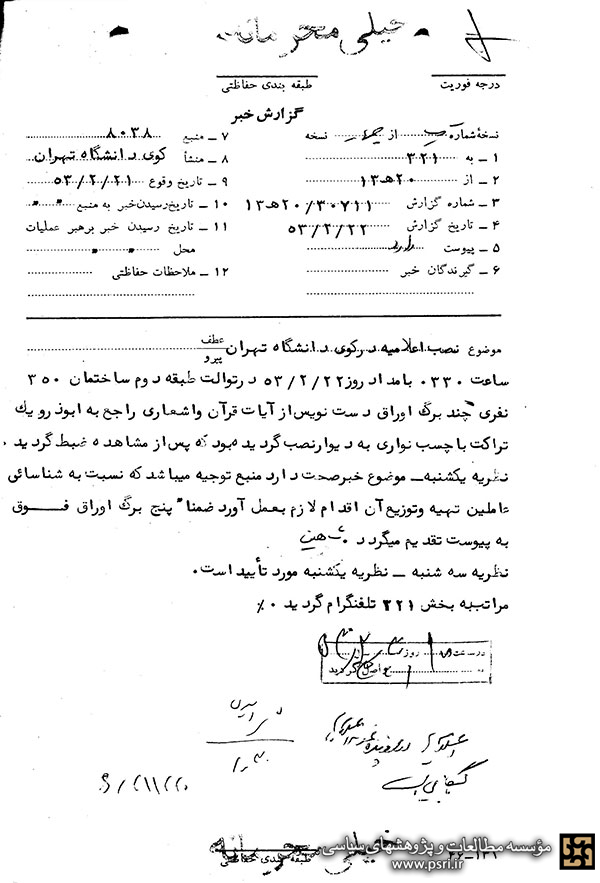 خیلی محرمانه
درجه فوریت
طبقه بندی حفاظتی
گزارش خبر
نسخهٔ شماره از نسخه
۱ ـ به ۳۲۱
۲ ـ از ۲۰هـ۱۳
۳ ـ شماره گزارش ۲۰/۳۰۷۱۱هـ۱۳
۴ ـ تاریخ گزارش ۵۳/۲/۲۲
۵ ـ پیوست دارد
۶ ـ گیرندگان خبر
۷ ـ منبع ۸۰۳۸
۸ ـ منشأ کوی دانشگاه تهران
۹ ـ تاریخ وقوع ۵۳/۲/۲۱
۱۰ ـ تاریخ رسیدن خبر به منبع ״ ״
۱۱ ـ تاریخ رسیدن خبر برهبر عملیات
محل ״ ״
۱۲ ـ ملاحظات حفاظتی
موضوع نصب اعلامیه در کوی دانشگاه تهران عطف پیرو
ساعت ۰۳۳۰ بامداد روز ۵۳/۲/۲۲ در توالت طبقه دوم ساختمان ۳۵۰
نفری چند برگ اوراق دست نویس از آیات قرآن و اشعاری راجع به ابوذر و یک
تراکت با چسب نواری به دیوار نصب گردیده بود که پس از مشاهده ضبط گردید ۰
نظریه یکشنبه ـ موضوع خبر صحت دارد منبع توجیه میباشد که نسبت به شناسائی
عاملین تهیه و توزیع آن اقدام لازم بعمل آورد ضمناً پنج برگ اوراق فوق
به پیوست تقدیم میگردد ۰
نظریه سه شنبه ـ نظریه یکشنبه مورد تأیید است.
مراتب به بخش ۳۲۱ تلفنگرام گردید ۰٪
در ساعت روز
واصل گردید
خیلی محرمانه
طبقه بندی حفاظتی
مؤسسه مطالعات و پژوهشهای سیاسی
www.psri.ir